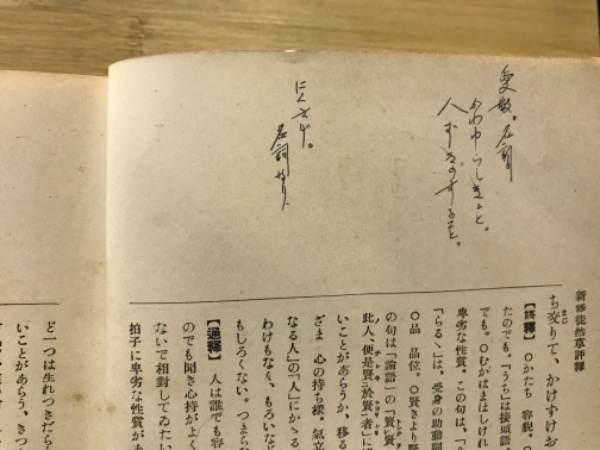 愛敬。名詞
かわゆらしきこと。
人ずきのすること。
にくさげ。
名詞なり、
新釋徒然草評釋
ち交りて、かけずけお
【語釋】〇かたち 容貌。〇
たのでも。「うち」は接頭語。
でも。〇むかはまほしけれ
卑劣な性質。この句は、「
「らるゝ」は、受身の助動詞
〇品 品位。〇賢きより賢
の句は「論語」の「賢レ賢
此人、便是賢二於賢一者」に
いことがあらうか、移る
ざま 心の持ち樣。氣立
なる人」の「人」にかゝる
わけもなく、もろいなど
もしろくない。つまらな
【通釋】 人は誰でも容
のでも聞き心持がよく
ないで相對してゐたい
拍子に卑劣な性質があ
ど一つは生れつきだら
いことがあらう、きつ